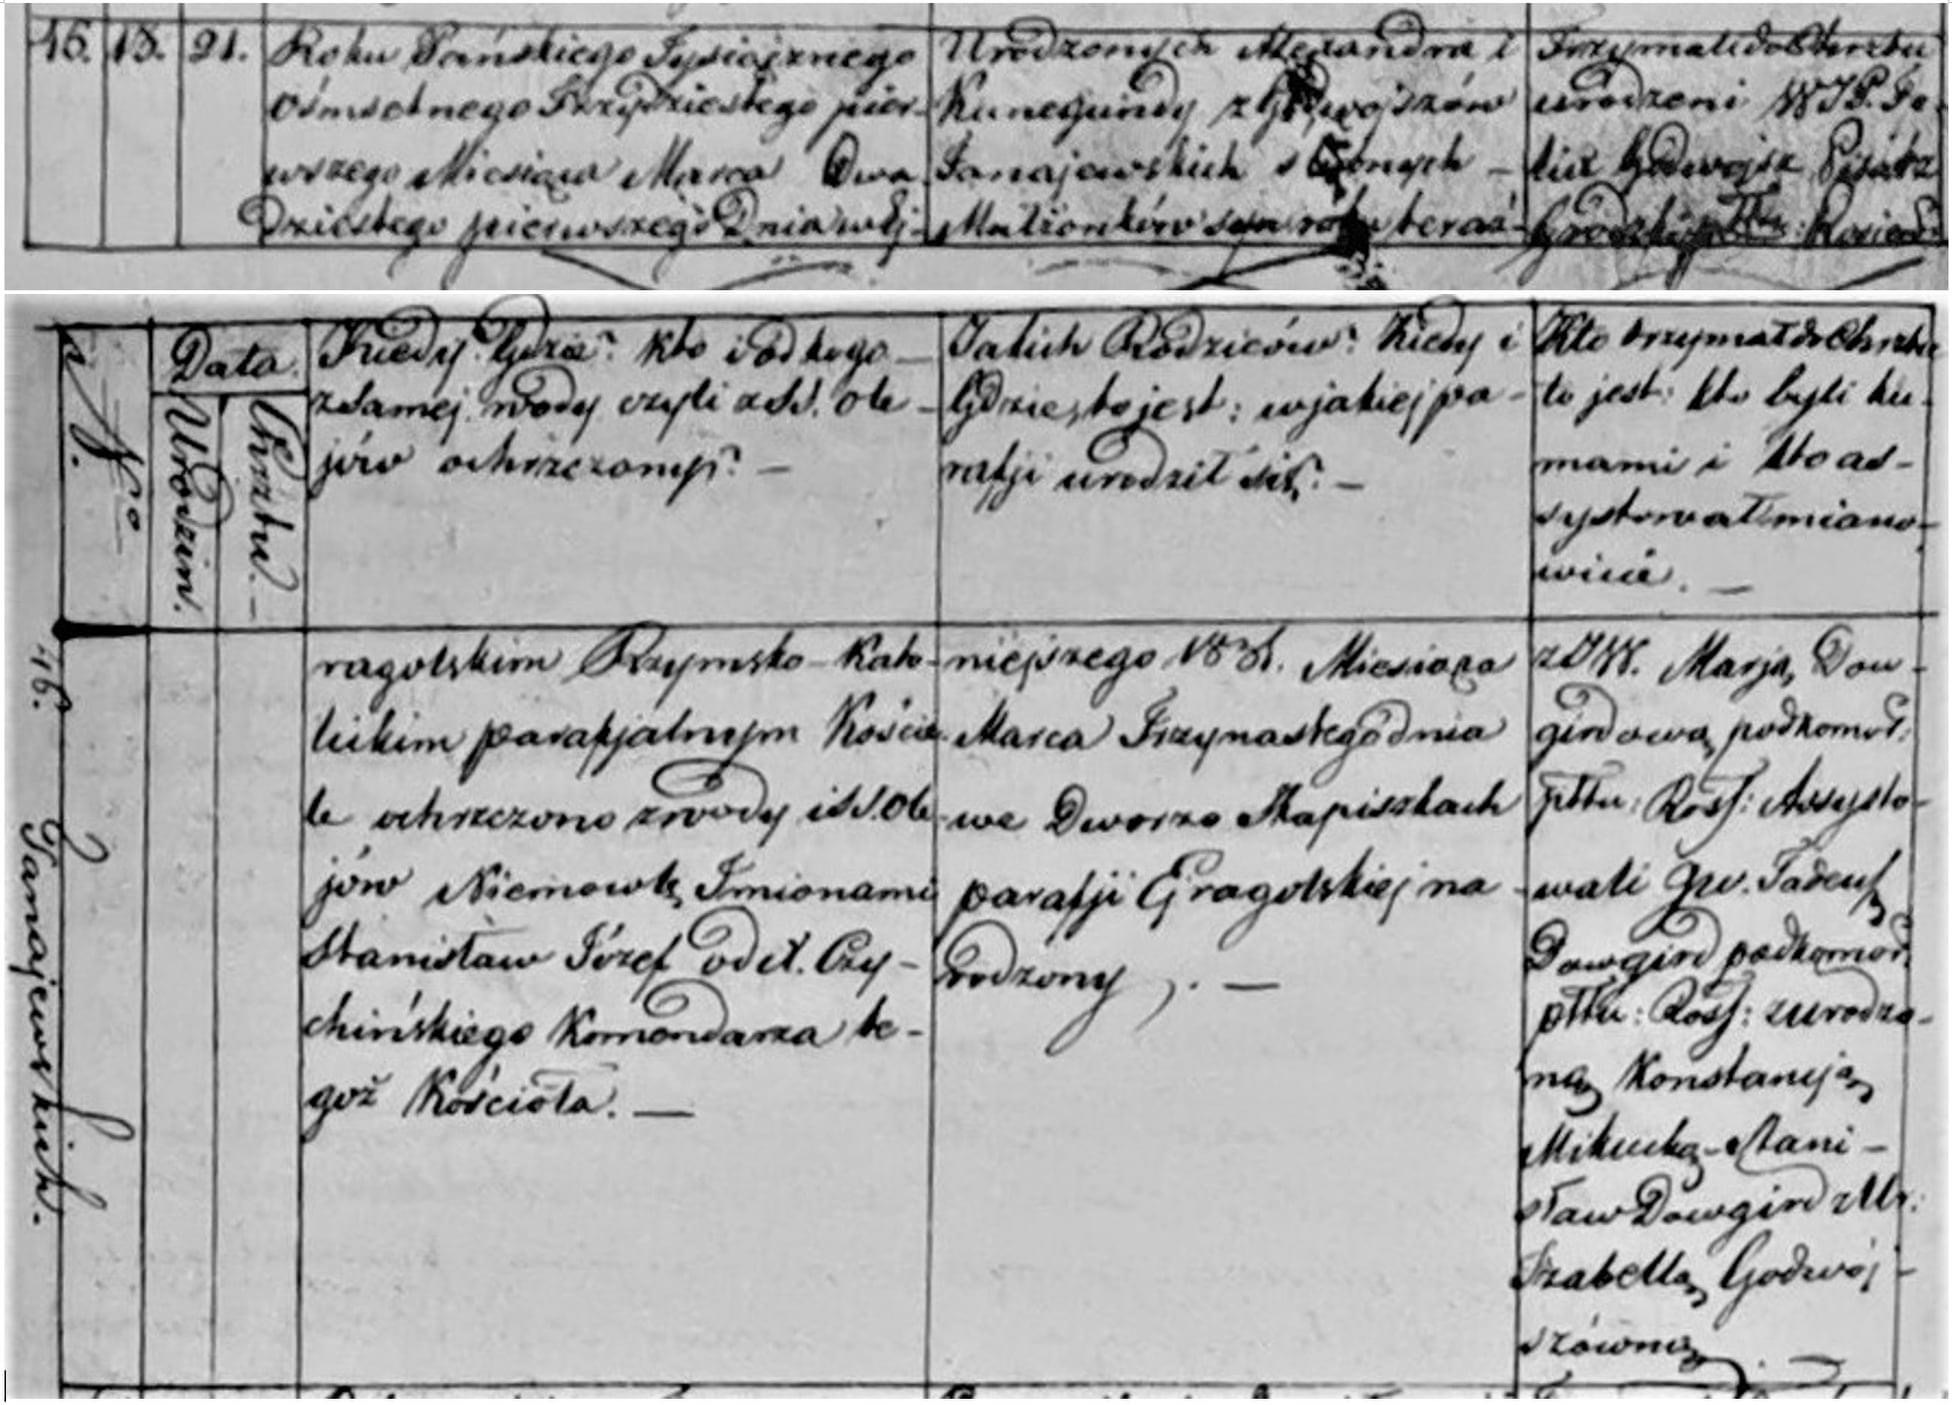 16. 13. 21. Roku Pańskiego Tysiącznego
ośmsetnego Trzydziestego pier-
wszego Miesiąca Marca Dwa
Dziestego pierwszego Dnia w Ej-
Urodzonych Alexandra i
Kunegundy z Godwojszów
Tanajewskich ślubnych -
Małżonków syn roku teraź-
Trzymali do Chrztu
urodzeni WJP. Fe-
lix Godwojsz Pisarz
Grodzki pttu: Rosień:
N.
No
Data
Urodzin.
Chrztu. -
Kiedy? Gdzie? Kto i od kogo -
z Samej wody czyli z SS. Ole-
jów ochrzczony? -
Jakich Rodziców? Kiedy i
Gdzie, to jest: w jakiej pa-
rafji urodził się? -
Kto trzymał do Chrztu
to jest: kto byli ku-
mami i kto as-
systował miano-
wicie. -
16. Tanajewskich.
ragolskim Rzymsko-Kato-
lickim parafjalnym Koście-
le ochrzczono z wody i SS. Ole-
jów Niemowlę Imionami
Stanisław Józef od X. Czy-
chińskiego Komendarza te-
goż Kościoła. -
niejszego 1831. Miesiąca
Marca Trzynastego dnia
we Dworze Skapiszkach
parafji Ejragolskiej na
rodzony . -
z JW. Marją Dow-
girdową podkomor:
pttu: Ross: Assysto-
wali Jw. Tadeusz
Dowgird podkomor:
pttu: Ross: z urodzo-
ną Konstancją
Mikucką - Stani-
sław Dowgird z
Izabellą Godwoj-
szówną . -